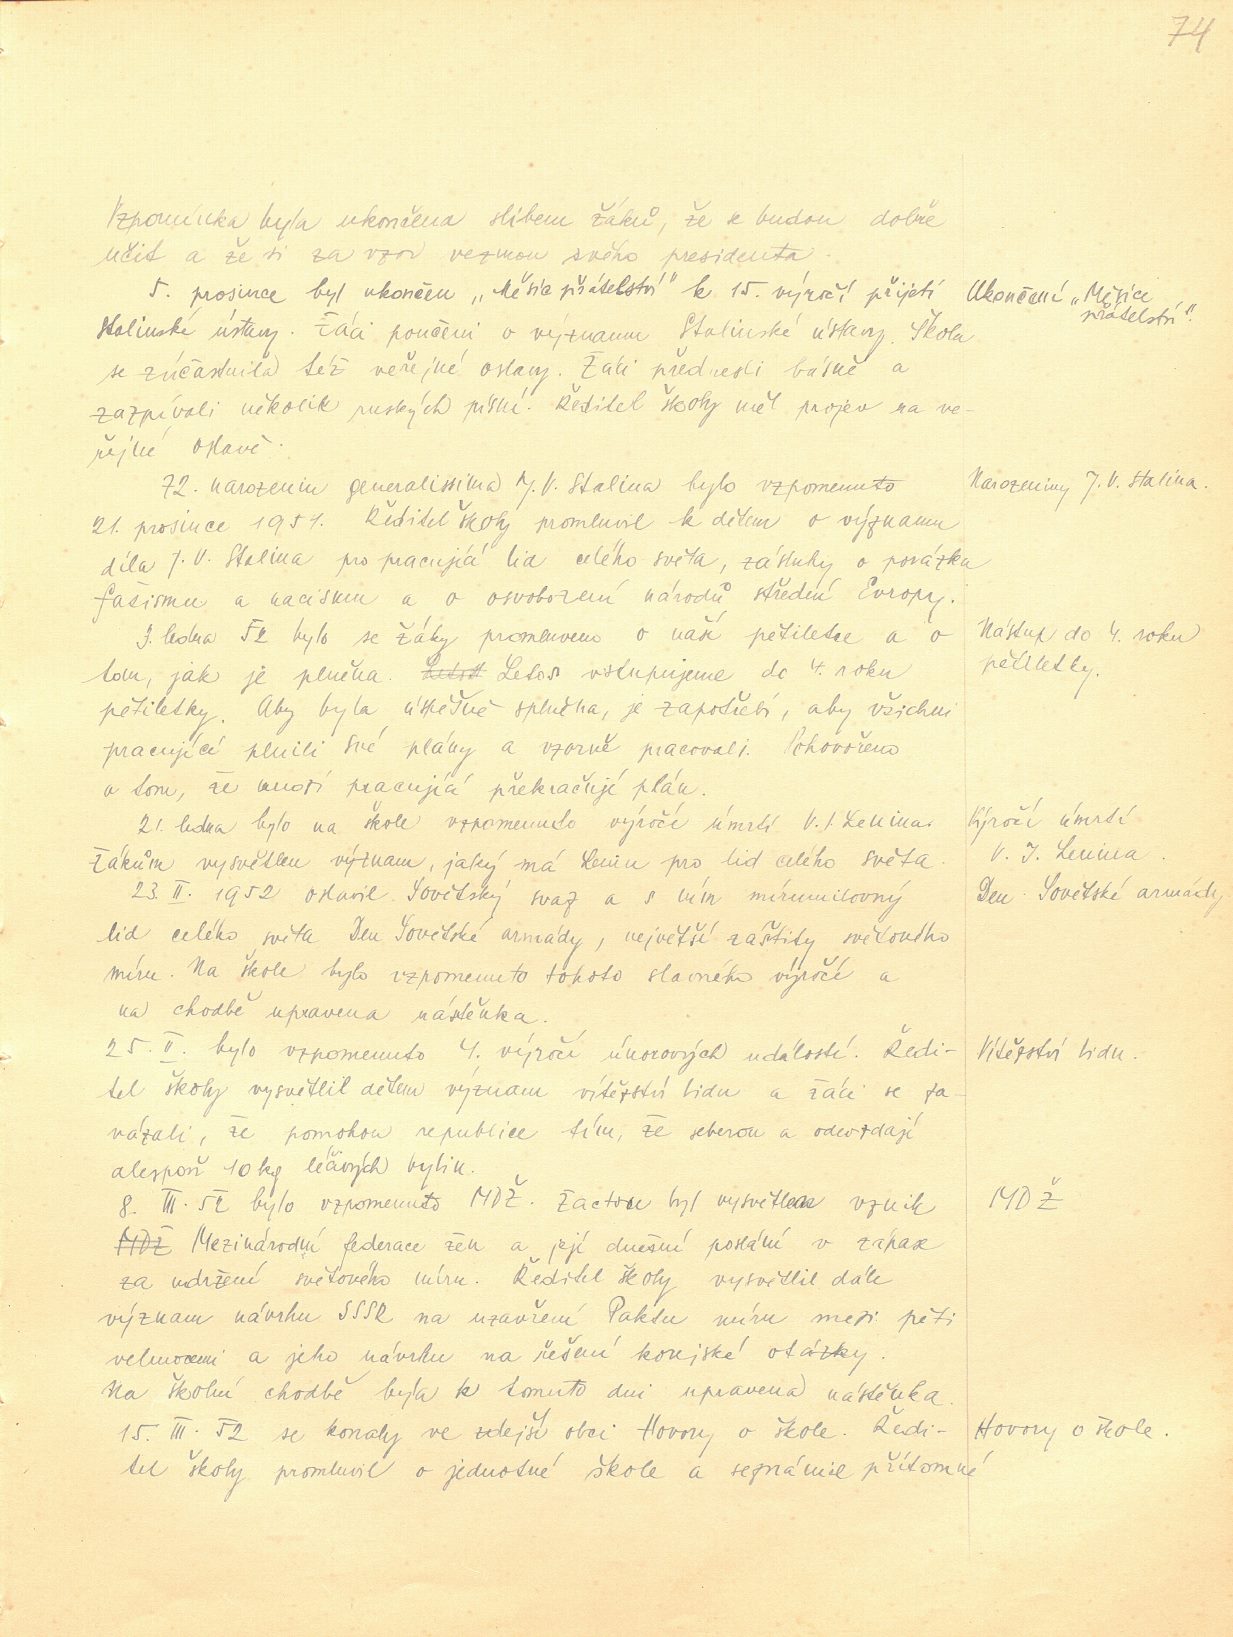 74
Vzpomínka byla ukončena slibem žáků, že se budou dobře
učit a že si za vzor vezmou svého presidenta.
5. prosince byl ukončen „Měsíc přátelství" k 15. výročí přijetí
Ukončení „Měsíce
přátelství".
Stalinské ústavy. Žáci poučeni o významu Stalinské ústavy. Škola
se zúčastnila též veřejné oslavy. Žáci přednesli básně a
zazpívali několik ruských písní. Ředitel školy měl projev na ve-
řejné oslavě.
72. narozenin generalissima J. V. Stalina bylo vzpomenuto
Narozeniny J. V. Stalina.
21. prosince 1951. Ředitel školy promluvil k dětem o významu
díla J. V. Stalina pro pracující lid celého světa, zásluhy o porážku
fašismu a nacismu a o osvobození národů střední Evropy.
3. ledna 52 bylo se žáky promluveno o naší pětiletce a o
Nástup do 4. roku
pětiletky.
tom, jak je plněna. Letos Letos vstupujeme do 4. roku
pětiletky. Aby byla úspěšně splněna, je zapotřebí, aby všichni
pracující plnili své plány a vzorně pracovali. Pohovořeno
o tom, že mnozí pracující překračují plán.
21. ledna bylo na škole vzpomenuto výročí úmrtí V. I. Lenina.
Výročí úmrtí
V. I. Lenina.
Žákům vysvětlen význam, jaký má Lenin pro lid celého světa.
23. II. 1952 oslavil Sovětský svaz a s ním mírumilovný
Den Sovětské armády
lid celého světa Den Sovětské armády, největší záštity světového
míru. Na škole bylo vzpomenuto tohoto slavného výročí a
na chodbě upravena nástěnka.
25. II. bylo vzpomenuto 4. výročí únorových událostí. Ředi-
Vítězství lidu.
tel školy vysvětlil dětem význam vítězství lidu a žáci se za-
vázali, že pomohou republice tím, že seberou a odevzdají
alespoň 10 kg léčivých bylin.
8. III. 52 bylo vzpomenuto MDŽ. Žactvu byl vysvětlen vznik
MDŽ
MDŽ Mezinárodní federace žen a její dnešní poslání v zápase
za udržení světového míru. Ředitel školy vysvětlil dále
význam návrhu SSSR na uzavření Paktu míru mezi pěti
velmocemi a jeho návrhu na řešení korejské otázky.
Na školní chodbě byla k tomuto dni upravena nástěnka.
15. III. 52 se konaly ve zdejší obci Hovory o škole. Ředi-
Hovory o škole.
tel školy promluvil o jednotné škole a seznámil přítomné